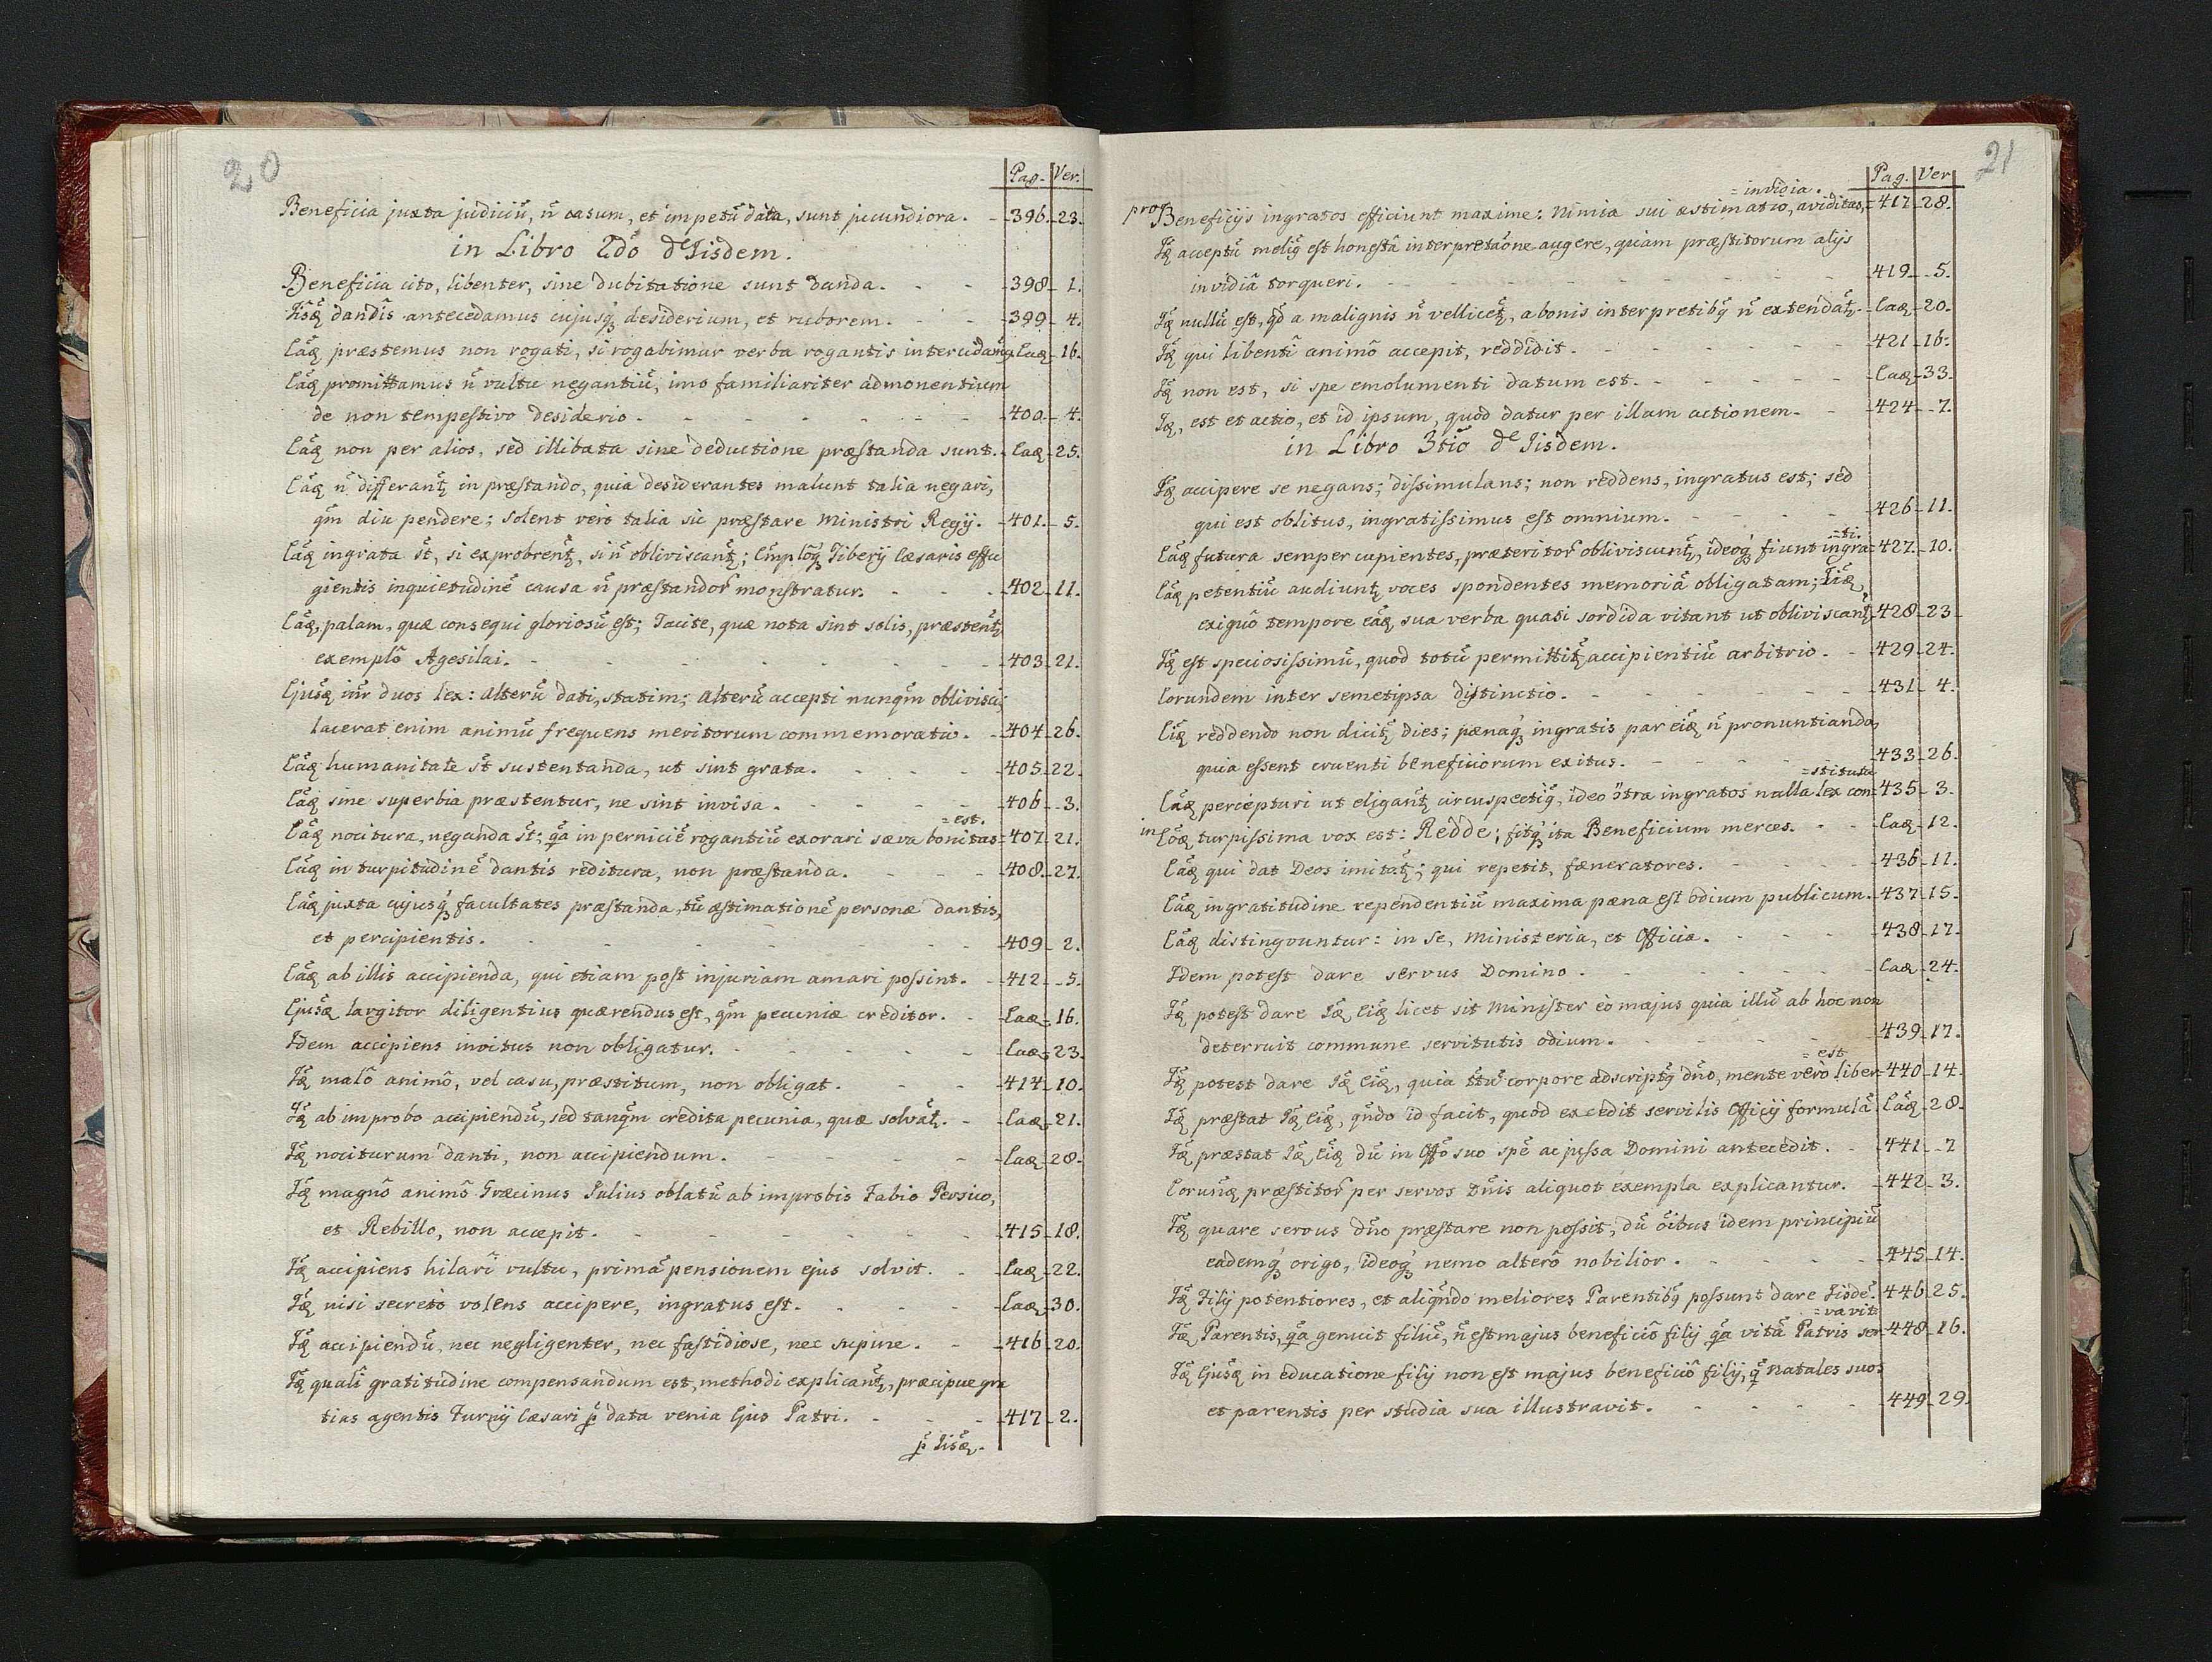 20
Pag. Ver.
Beneficia juxta judiciũ, ñ casum, et impetũ data, sunt jucundiora. - 396. 23.
in Libro 2dõ de Iisdem.
Beneficia cito, libenter, sine dubitatione sunt danda. - 398. 1.
dandîs antecedamus cujusq́ʒ desiderium, et ruborem. - 399. 4.
Eãꝗ præstemus non rogati, si rogabimur verba rogantis intercidamꝰ. Eaꝗ 16.
Eãꝗ promittamus ñ vultu negantiũ, imo familiariter admonentium
de non tempestivo desiderio. - 400. 4.
Eãꝗ non per alios, sed illibata sine deductione præstanda sunt. Eaꝗ 25.
Eãꝗ ñ differant̃ in præstando, quia desiderantes malunt talia negari,
qm̃ diu pendere; solent vero talia sic præstare Ministri Regij. - 401. 5.
Eãꝗ ingrata st̃, si exprobrent̃, si ñ obliviscant̃; Tiberij Cæsaris effu
gientis inquietudinẽ causa ñ præstandor̃ monstratur. - 402. 11.
Eãꝗ, palam, quæ consequi gloriosũ est; Tacite, quæ nota sint solis, præstent̃
exemplô Agesilai. - 403. 21.
Ejusꝗ̃ inr̃ duos lex: Alterũ dati, statim; Alterũ accepti nunqm̃ oblivisci:
lacerat enim animũ frequens meritorum commemoratio. - 404. 26.
Eãꝗ humanitate st̃ sustentanda, ut sint grata. - 405. 22.
Eãꝗ sine superbia præstentur, ne sint invisa. - 406. 3.
=est.
Eãꝗ nocitura, neganda st̃: ꝗ̃a in perniciẽ rogantiũ exorari sæva bonitas= 407. 21.
Eãꝗ in turpitudinẽ dantis reditura, non præstanda. - 408. 27.
Eãꝗ juxta cujusq́ʒ facultates præstanda, tũ æstimationẽ personæ dantis,
et percipientis. - 409. 2.
Eãꝗ ab illis accipienda, qui etiam post injuriam amari possint. - 412. 5.
Ejusꝗ̃ largitor diligentius quærendus est, qm̃ pecuniæ creditor. - Eaꝗ 16.
Idem accipiens invitus non obligatur. - Eaꝗ 23.
Iꝗ̃ malô animô, vel casu, præstitum, non obligat. - 414. 10.
Iꝗ̃ ab improbo accipiendũ, sed tanqm̃ credita pecunia, quæ solvat̃. - Eaꝗ 21.
Iꝗ̃ nociturum danti, non accipiendum. - Eaꝗ 28.
Iꝗ̃ magnô animô Græcinus Julius oblatũ ab improbis Fabio Persico,
et Rebillo, non accepit. - 415. 18.
Iꝗ̃ accipiens hilarî vultu, primã pensionem ejus solvit. - Eaꝗ 22.
Iꝗ̃ nisi secretò volens accipere, ingratus est. - Eaꝗ 30.
Iꝗ̃ accipiendũ, nec negligenter, nec fastidiose, nec supine. - 416. 20.
Iꝗ̃ qualî gratitudine compensandum est, methodi explicant̃, præcipue gra
tias agentis Furnij Cæsari p̃ data venia Ejus Patri. - 417. 2.
p̃ Iisꝗ̃.
21
Pag. Ver.
= invidia.
pro Beneficijs ingratos efficiunt maxime: Nimia sui æstimatio, aviditas, 417. 28.
Iꝗ̃ acceptũ meliꝰ est honestâ interpretaõne augere, quam præstitorum alijs
invidiâ torqueri. - 419. 5.
Iꝗ̃ nullũ est, qd̃ a malignis ñ vellicet̃, a bonis interpretibꝰ ñ extendat̃. - Eaꝗ 20.
Iꝗ̃ qui libentî animô accepit, reddidit. - 421. 16.
Iꝗ̃ non est, si spe emolumenti datum est. - Eaꝗ 33.
Iꝗ̃, est et actio, et id ipsum, quod datur per illam actionem. - 424. 7.
in Libro 3tiõ de Iisdem.
Iꝗ̃ accipere se negans; dissimulans; non reddens, ingratus est; sed
qui est oblitus, ingratissimus est omnium. - 426. 11.
=ti.
Eãꝗ futura semper cupientes, præteritor̃ obliviscunt̃, ideoq́ʒ fiunt ingra= 427. 10.
Eãꝗ petentiũ audiunt̃ voces spondentes memoriã obligatam;
exiguô tempore eãꝗ sua verba quasi sordida vitant ut obliviscant̃ 428. 23
Iꝗ̃ est speciosissimũ, quod totũ permittit̃ accipientiũ arbitrio. - 429. 24.
Eorundem inter semetipsa distinctio. - 431. 4.
Eiꝗ̃ reddendo non dicit̃ dies; pænaq́ʒ ingratis par eiꝗ̃ ñ pronuntianda,
quia essent cruenti beneficiorum exitus. - 433. 26.
=stituta
Eãꝗ percepturi ut eligant̃ circuspectiꝰ, ideo ɔ̃tra ingratos nulla lex con= 435. 3.
in Eõꝗ turpissima vox est: Redde; fitq́ʒ ita Beneficium merces. - Eaꝗ 12.
Eãꝗ qui dat Deos imitat̃; qui repetit, fæneratores. - 436. 11.
Eãꝗ ingratitudine rependentiũ maxima pæna est odium publicum. 437. 15.
Eãꝗ distingvuntur: in Se, Ministeria, et Officia. - 438. 17.
Idem potest dare servus Domino. - Eaꝗ 24.
Iꝗ̃ potest dare Iꝗ̃ Eiꝗ̃ licet sit Minister eò majus quia illũ ab hoc non
deterruit commune servitutis odium. - 439. 17.
= est
Iꝗ̃ potest dare Iꝗ̃ Eiꝗ̃, quia corpore adscriptꝰ dno̅, mente verò liber= 440. 14.
Iꝗ̃ præstat Iꝗ̃ Eiꝗ̃, qñdo id facit, quod excedit servilis Officij formulã Eãꝗ 28.
Iꝗ̃ præstat Iꝗ̃ Eiꝗ̃ dũ in Offõ suo spẽ ac jussa Domini antecedit. - 441. 7
Eorunꝗ̃ præstitor̃ per servos Dñis aliquot exempla explicantur. - 442. 3.
Iꝗ̃ quare servus dño præstare non possit, dũ oĩbus idem principiũ
eademq́ʒ origo, ideoq́ʒ nemo alterô nobilior. - 445. 14.
Iꝗ̃ Filij potentiores, et aliqñdo meliores Parentibꝰ possunt dare Iisdẽ. 446. 25.
=vavit
Iꝗ̃ Parentis, ꝗ̃a genuit filiũ, ñ est majus beneficiô filij ꝗ̃a vitã Patris ser= 448. 16.
Iꝗ̃ Ejusꝗ̃ in educatione filij non est majus beneficiô filij, ꝗ̃ natales suos
et parentis per studia sua illustravit. - 449. 29.